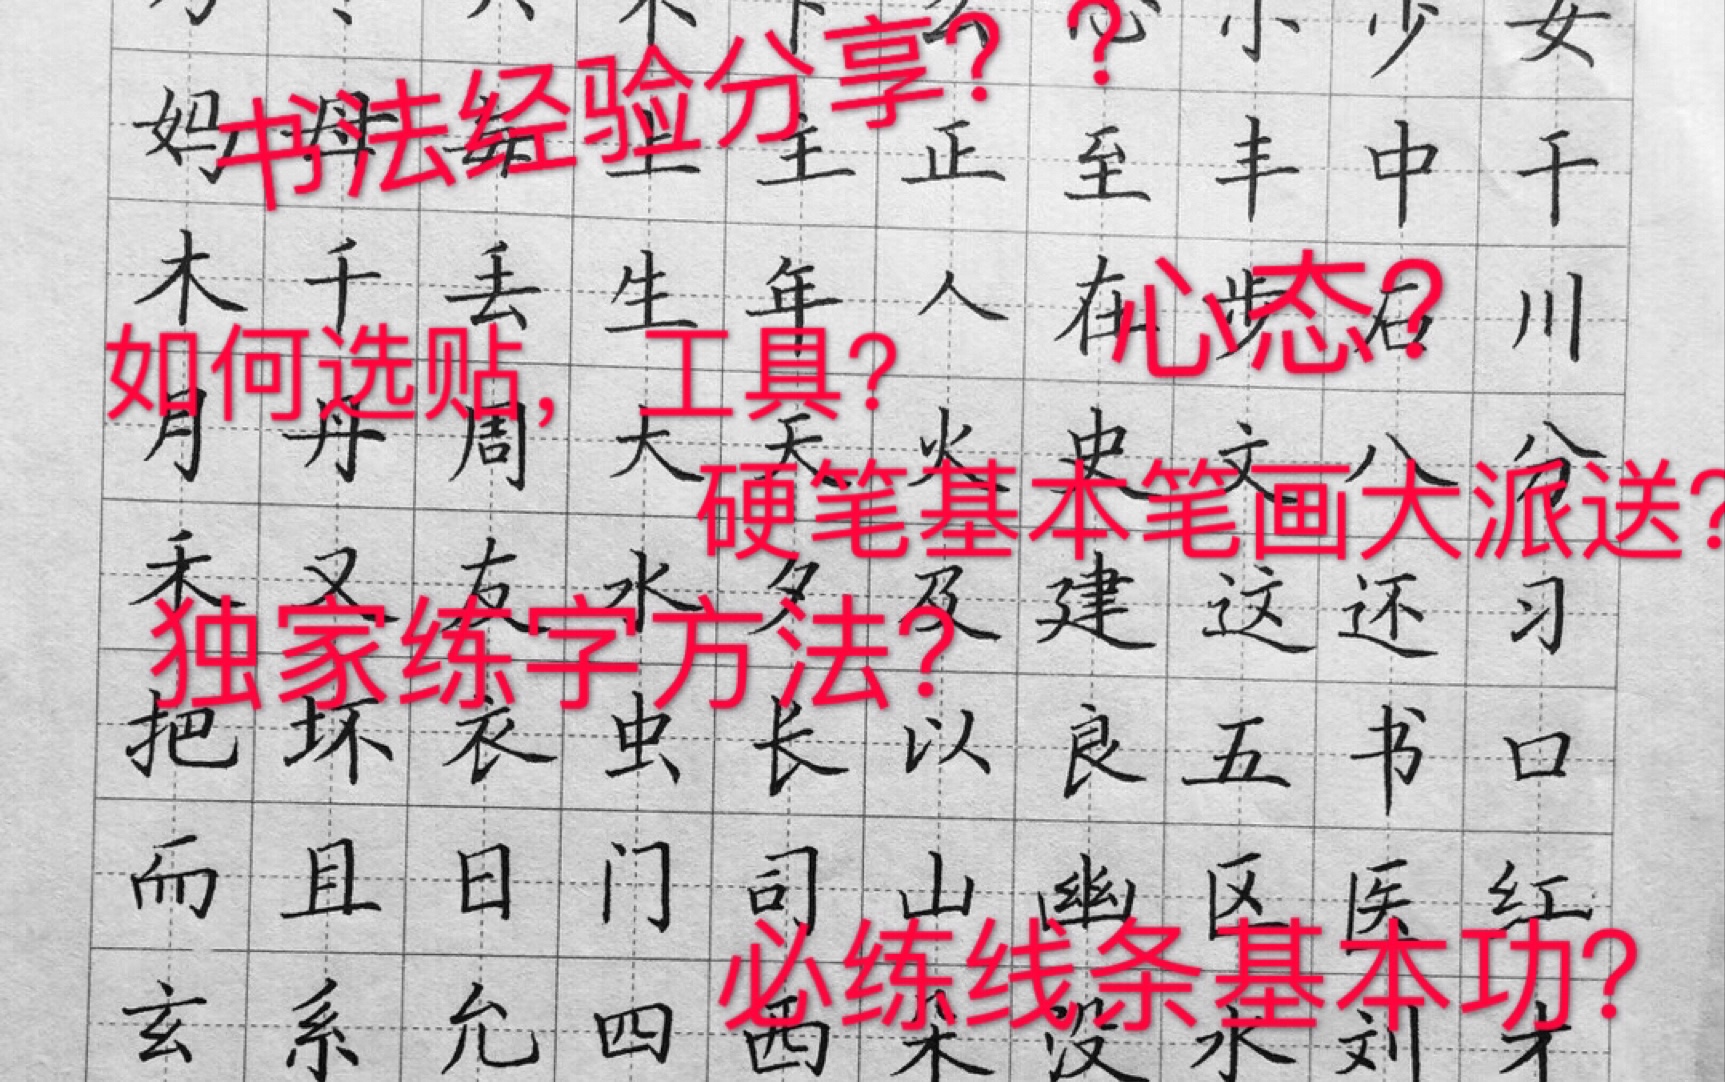 小 少 女
书法经验分享？？
妈 母 如 上 主 正 至 丰 中 干
木 千 丢 生 年 人 在 步 石 川
心态？
如何选贴，工具？
月 丹 周 大 天 火 史 文 八 分
硬笔基本笔画大派送？
禾 又 友 水 夕 及 建 这 还 习
独家练字方法？
把 坏 衣 虫 长 以 良 五 书 口
而 且 日 门 司 山 幽 区 医 红
必练线条基本功？
玄 系 允 四 西 朵 没 水 刘 才